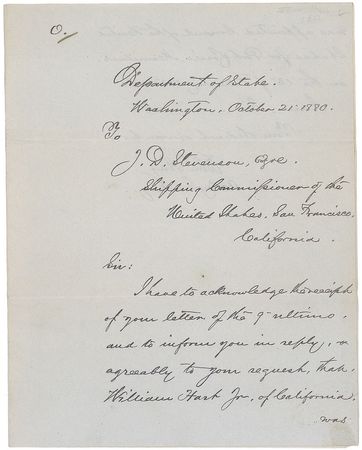 O.
Department of State.
Washington, October 21. 1880.
To
J. D. Stevenson, Esqre.
Shipping Commissioner of the
United States, San Francisco,
California.
Sir:
I have to acknowledge the receipt
of your letter of the 9th ultimo,
and to inform you in reply,
agreeably to your request, that
William Hart Jr., of California,
was